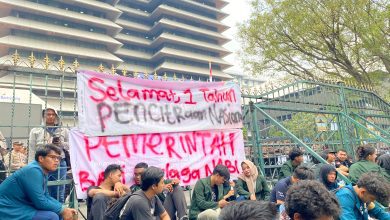 Selamat 1 Tahun
PENCITRAAN NASIONAL
PEMERINTAH
NABI